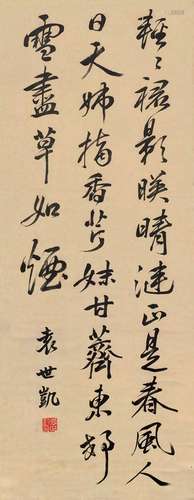 輕〻裙影映晴漣正是春風人
日天姊摘香芹妹甘薺東郊
雪盡草如煙
袁世凱